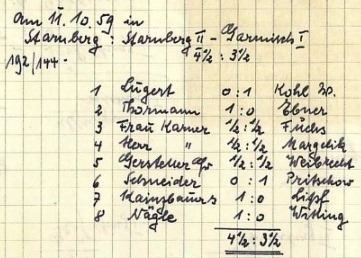 am 11.10.59 in
Starnberg: Starnberg II - Garmisch I
4½ : 3½
192/144.
1 Lugert 0 : 1 Kohl W.
2 Thormann 1 : 0 Ebner
3 Frau Karner ½ : ½ Fuchs
4 Herr " ½ : ½ Margelik
5 Gersteller ½ : ½ Weibrecht
6 Schneider 0 : 1 Pritschow
7 Kainzbauer 1 : 0 Lipf
8 Nägle 1 : 0 Witting
4½ : 3½